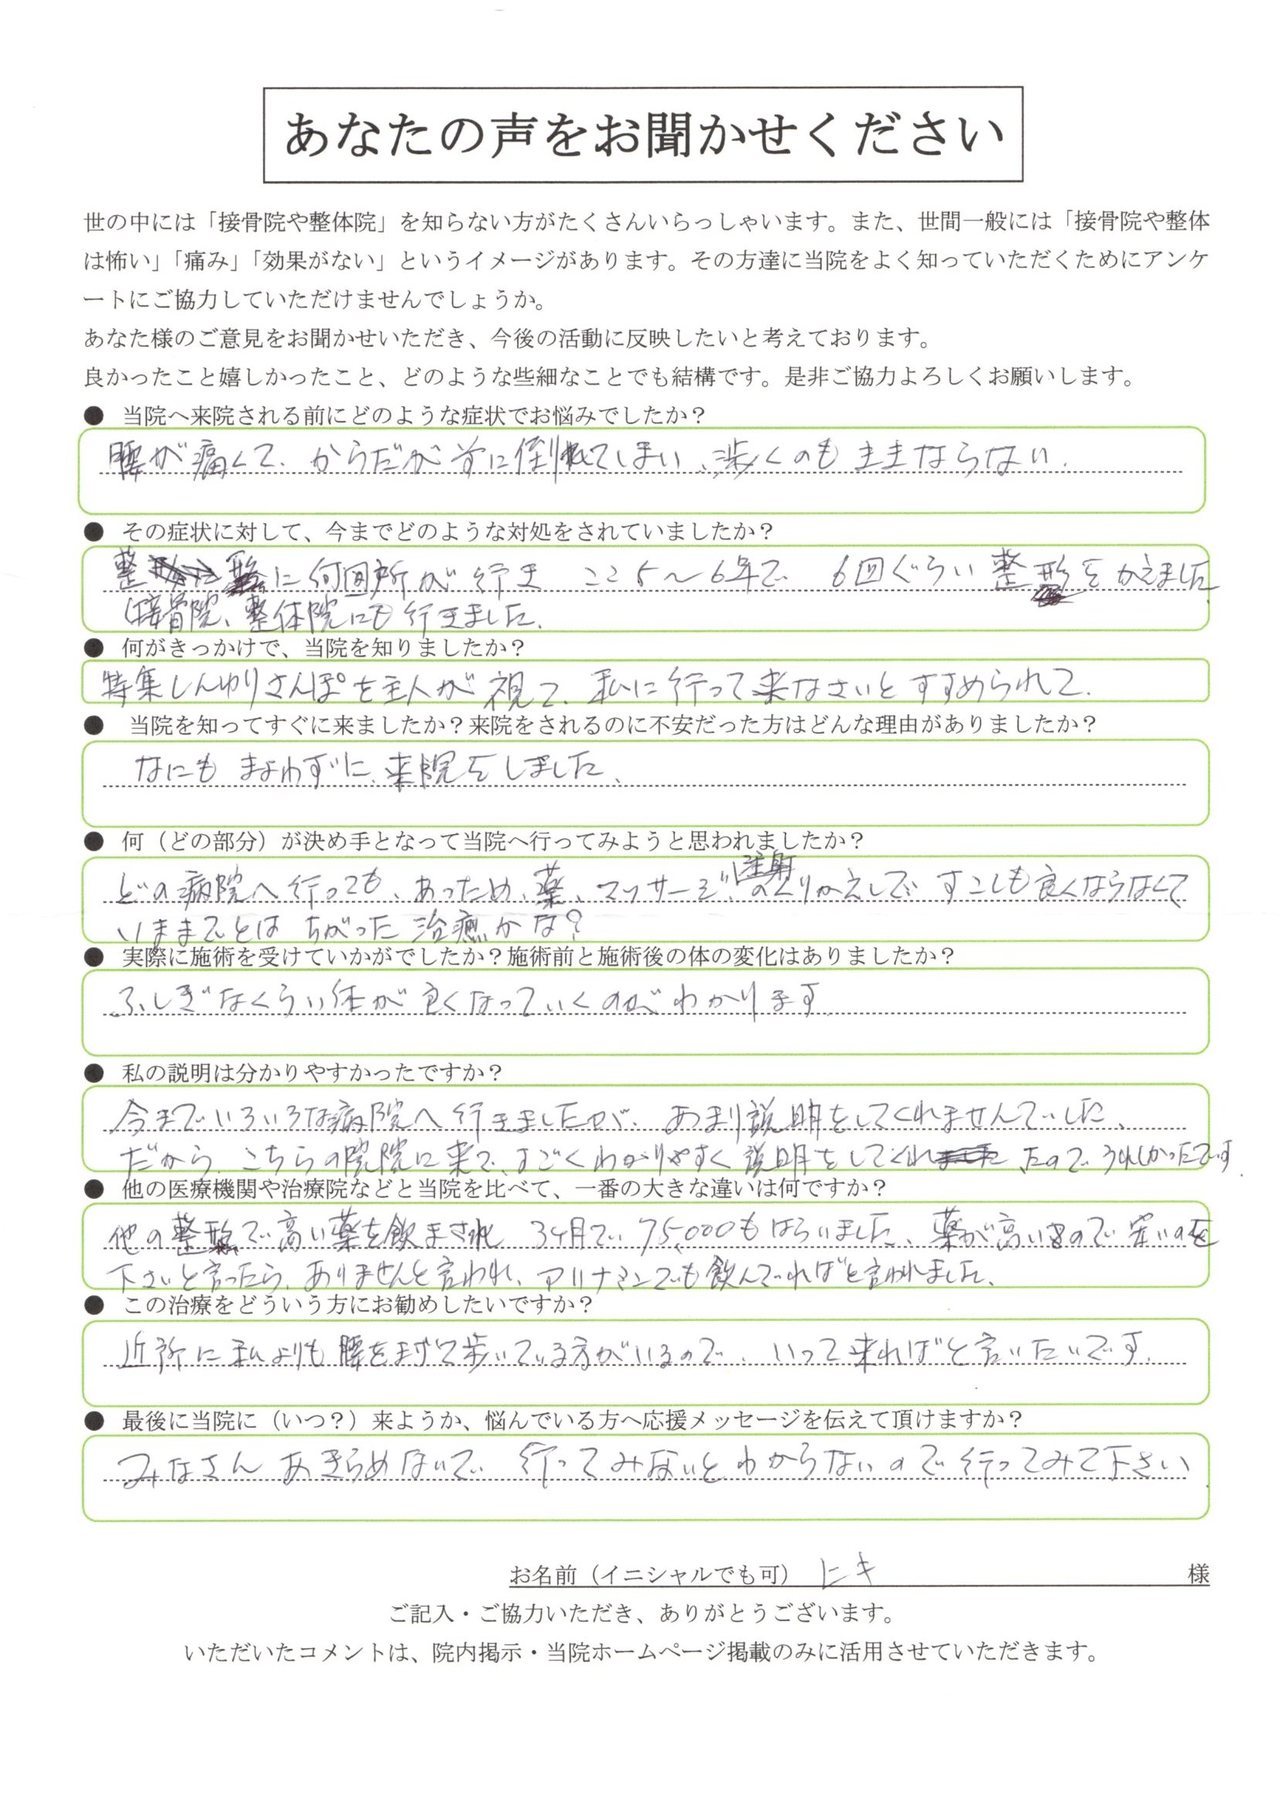 あなたの声をお聞かせください
世の中には「接骨院や整体院」を知らない方がたくさんいらっしゃいます。また、世間一般には「接骨院や整体
は怖い」「痛み」「効果がない」というイメージがあります。その方達に当院をよく知っていただくためにアンケ
ートにご協力していただけませんでしょうか。
あなた様のご意見をお聞かせいただき、今後の活動に反映したいと考えております。
良かったこと嬉しかったこと、どのような些細なことでも結構です。是非ご協力よろしくお願いします。
● 当院へ来院される前にどのような症状でお悩みでしたか？
腰が痛くて、からだが前に倒れてしまい、歩くのもままならない.
● その症状に対して、今までどのような対処をされていましたか？
整形に何回所が行き ここ5～6年で 6回ぐらい 整形をかえました
接骨院、整体院にも行きました.
● 何がきっかけで、当院を知りましたか？
特集しんゆりさんぽを主人が視て、私に行って来なさいとすすめられて.
● 当院を知ってすぐに来ましたか？来院をされるのに不安だった方はどんな理由がありましたか？
なにもまよわずに、来院をしました、
● 何（どの部分）が決め手となって当院へ行ってみようと思われましたか？
どの病院へ行っても、あっため、薬、マッサージ、注射のくりかえしで すこしも良くならなくて
いままでとは ちがった治癒かな？
● 実際に施術を受けていかがでしたか？施術前と施術後の体の変化はありましたか？
ふしぎなくらい体が良くなっていくのがわかります.
● 私の説明は分かりやすかったですか？
今までいろいろな病院へ行きましたが、あまり説明をしてくれませんでした、
だから、こちらの院院に来て、すごくわかりやすく説明をしてくれたので うれしかったです.
● 他の医療機関や治療院などと当院を比べて、一番の大きな違いは何ですか？
他の整形で高い薬を飲まされ 3ヶ月で、75,000もはらいました、薬が高いので 安いのを
下さいと言ったら、ありませんと言われ、アリナミンでも飲んでればと言われました.
● この治療をどういう方にお勧めしたいですか？
近所に私よりも腰をまげて歩いている方がいるので、いって来ればと言いたいです.
● 最後に当院に（いつ？）来ようか、悩んでいる方へ応援メッセージを伝えて頂けますか？
みなさんあきらめないで 行ってみないとわからないので行ってみて下さい.
お名前（イニシャルでも可） ヒキ 様
ご記入・ご協力いただき、ありがとうございます。
いただいたコメントは、院内掲示・当院ホームページ掲載のみに活用させていただきます。